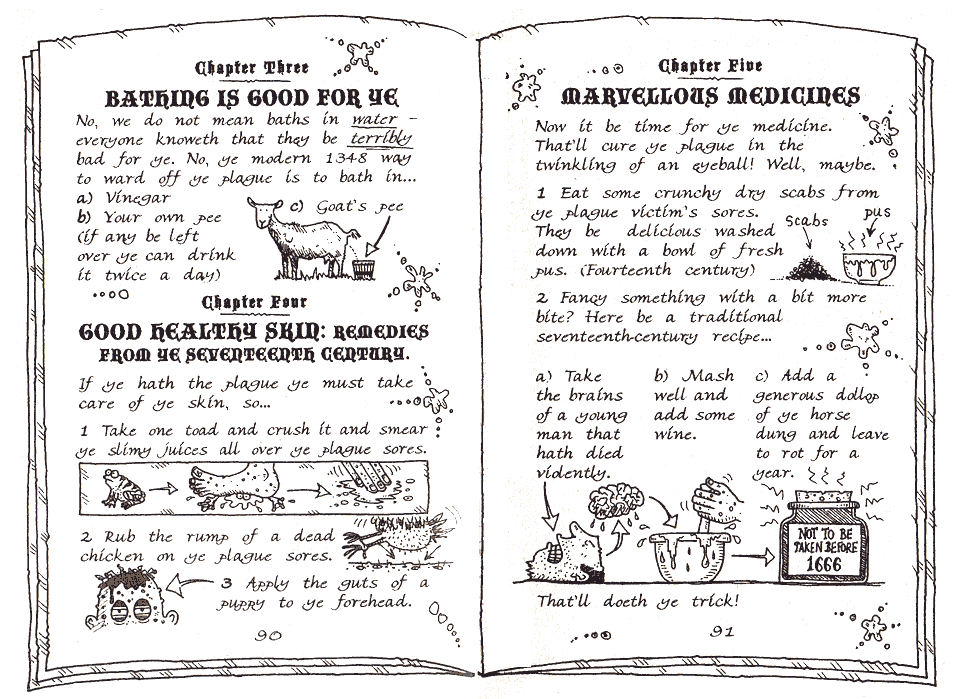 Chapter Three
BATHING IS GOOD FOR YE
No, we do not mean baths in water –
everyone knoweth that they be terribly
bad for ye. No, ye modern 1348 way
to ward off ye plague is to bath in...
a) Vinegar
b) Your own pee
(if any be left
over ye can drink
it twice a day)
c) Goat's pee
Chapter Four
GOOD HEALTHY SKIN: REMEDIES
FROM YE SEVENTEENTH CENTURY.
If ye hath the plague ye must take
care of ye skin, so...
1 Take one toad and crush it and smear
ye slimy juices all over ye plague sores.
2 Rub the rump of a dead
chicken on ye plague sores.
3 Apply the guts of a
puppy to ye forehead.
90
Chapter Five
MARVELLOUS MEDICINES
Now it be time for ye medicine.
That'll cure ye plague in the
twinkling of an eyeball! Well, maybe.
1 Eat some crunchy dry scabs from
ye plague victim's sores.
They be delicious washed
down with a bowl of fresh
pus. (Fourteenth century)
Scabs
pus
2 Fancy something with a bit more
bite? Here be a traditional
seventeenth-century recipe...
a) Take
the brains
of a young
man that
hath died
vidently.
b) Mash
well and
add some
wine.
c) Add a
generous dollop
of ye horse
dung and leave
to rot for a
year.
NOT TO BE
TAKEN BEFORE
1666
That'll doeth ye trick!
91